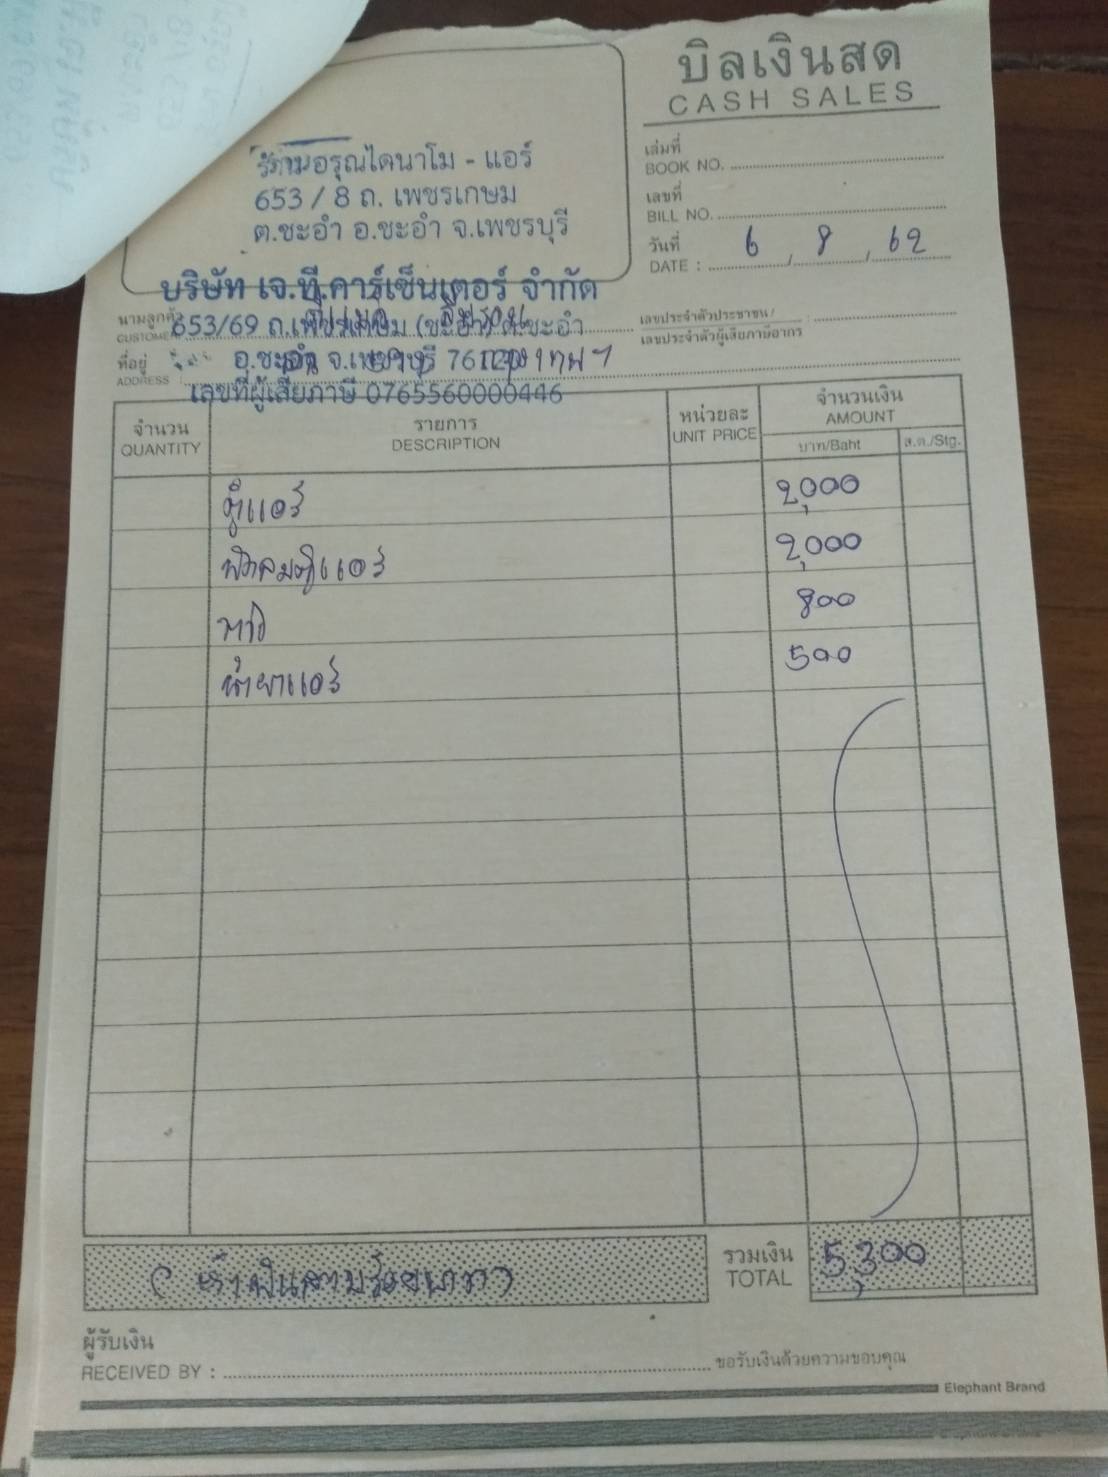 บิลเงินสด
CASH SALES
ร้านอรุณไดนาโม - แอร์
653 / 8 ถ. เพชรเกษม
ต.ชะอำ อ.ชะอำ จ.เพชรบุรี
เล่มที่
BOOK NO.
เลขที่
BILL NO.
วันที่ 6 / 8 / 62
DATE :
บริษัท เจ.ที.คาร์เซ็นเตอร์ จำกัด
653/69 ถ.เพชรเกษม (ชะอำ) ต.ชะอำ
อ.ชะอำ จ.เพชรบุรี 76120
เลขที่ผู้เสียภาษี 0765560000446
นามลูกค้า
CUSTOMER
ที่อยู่
ADDRESS :
เลขประจำตัวประชาชน / :
เลขประจำตัวผู้เสียภาษีอากร
จำนวน รายการ หน่วยละ จำนวนเงิน
QUANTITY DESCRIPTION UNIT PRICE AMOUNT
บาท/Baht ส.ต./Stg.
ตู้แอร์ 2,000
พัดลมตู้แอร์ 2,000
800
น้ำยาแอร์ 500
(ห้าพันสามร้อยบาท) รวมเงิน 5,300
TOTAL
ผู้รับเงิน
RECEIVED BY : ขอรับเงินด้วยความขอบคุณ
Elephant Brand